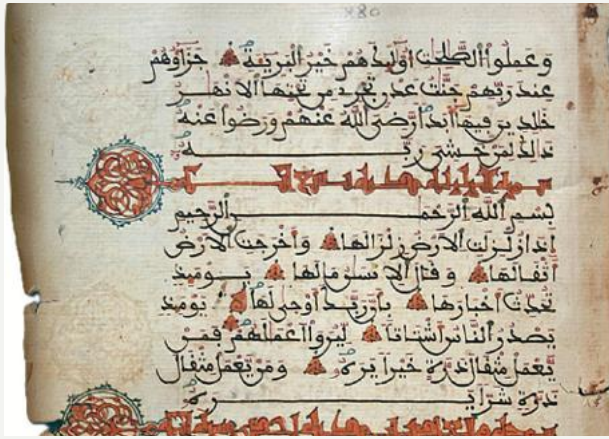 وعملوا الصلحت أوليك هم خير البرية جزاؤهم
عند ربهم جنت عدن تجري من تحتها الانهر
خلدين فيها أبدا رضي الله عنهم ورضوا عنه
ذلك لمن خشي ربه
سورة الزلزلة
بسم الله الرحمن الرحيم
إذا زلزلت الارض زلزالها وأخرجت الارض
أثقالها وقال الانسن مالها يوميذ
تحدث أخبارها بأن ربك أوحى لها يوميذ
يصدر الناس أشتاتا ليروا أعملهم فمن
يعمل مثقال ذرة خيرا يره ومن يعمل مثقال
ذرة شرا يره